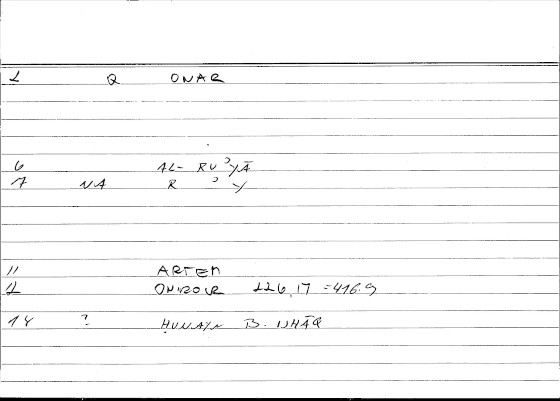 1 Q ONAR
6 AL- RUʾYĀ
7 NA R ʾ Y
11 ARTEM
12 ONIROCR 226,17 =416.9
14 ? ḤUNAYN B. ISḤĀQ